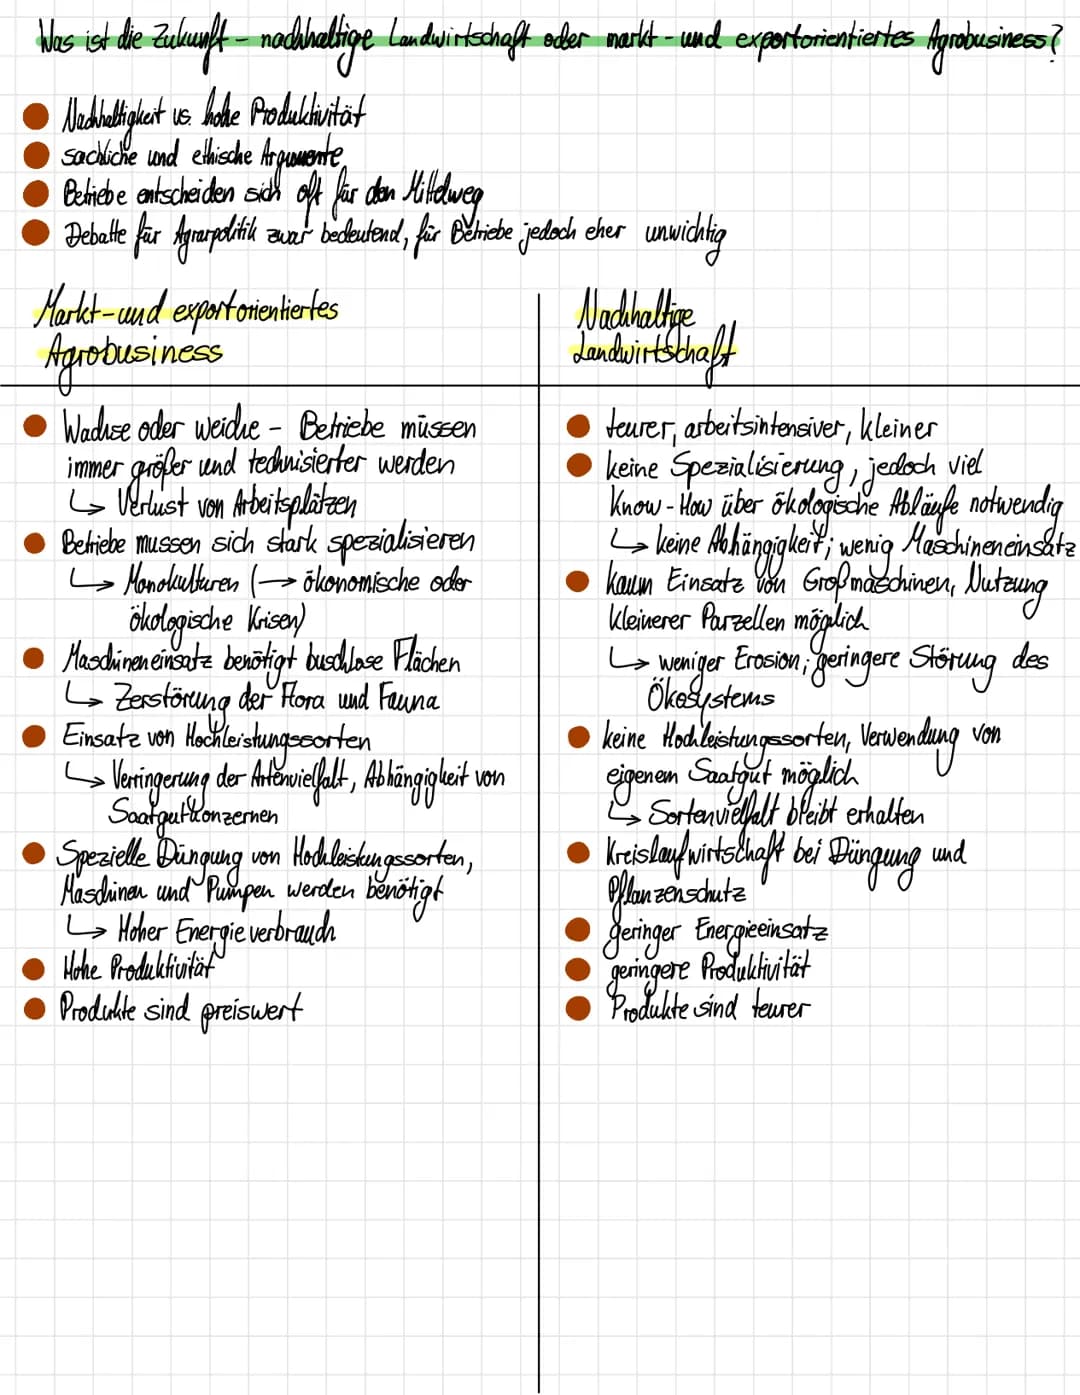 Was ist die Zukunft - nachhaltige Landwirtschaft oder markt- und exportorientiertes Agrobusiness?
Nachhaltigkeit vs. hohe Produktivität
sachliche und ethische Argumente
Betriebe entscheiden sich oft für den Mittelweg
Debatte für Agrarpolitik zwar bedeutend, für Betriebe jedoch eher unwichtig
Markt- und exportorientiertes
Agrobusiness
Wachse oder weiche - Betriebe müssen
immer größer und technisierter werden
↳ Verlust von Arbeitsplätzen
Betriebe mussen sich stark spezialisieren
↳ Monokulturen (→ ökonomische oder
ökologische Krisen)
Maschineneinsatz benötigt buschlose Flächen
↳ Zerstörung der Flora und Fauna
Einsatz von Hochleistungssorten
↳ Verringerung der Artenvielfalt, Abhängigkeit von
Saatgutkonzernen
Spezielle Düngung von Hochleistungssorten,
Maschinen und Pumpen werden benötigt
↳ Hoher Energieverbrauch
Hohe Produktivität
Produkte sind preiswert
Nachhaltige
Landwirtschaft
teurer, arbeitsintensiver, kleiner
keine Spezialisierung, jedoch viel
Know-How über ökologische Abläufe notwendig
↳ keine Abhängigkeit; wenig Maschineneinsatz
kaum Einsatz von Großmaschinen, Nutzung
kleinerer Parzellen möglich
↳ weniger Erosion; geringere Störung des
Ökosystems
keine Hochleistungssorten, Verwendung von
eigenem Saatgut möglich
↳ Sortenvielfalt bleibt erhalten
Kreislaufwirtschaft bei Düngung und
Pflanzenschutz
geringer Energieeinsatz
geringere Produktivität
Produkte sind teurer